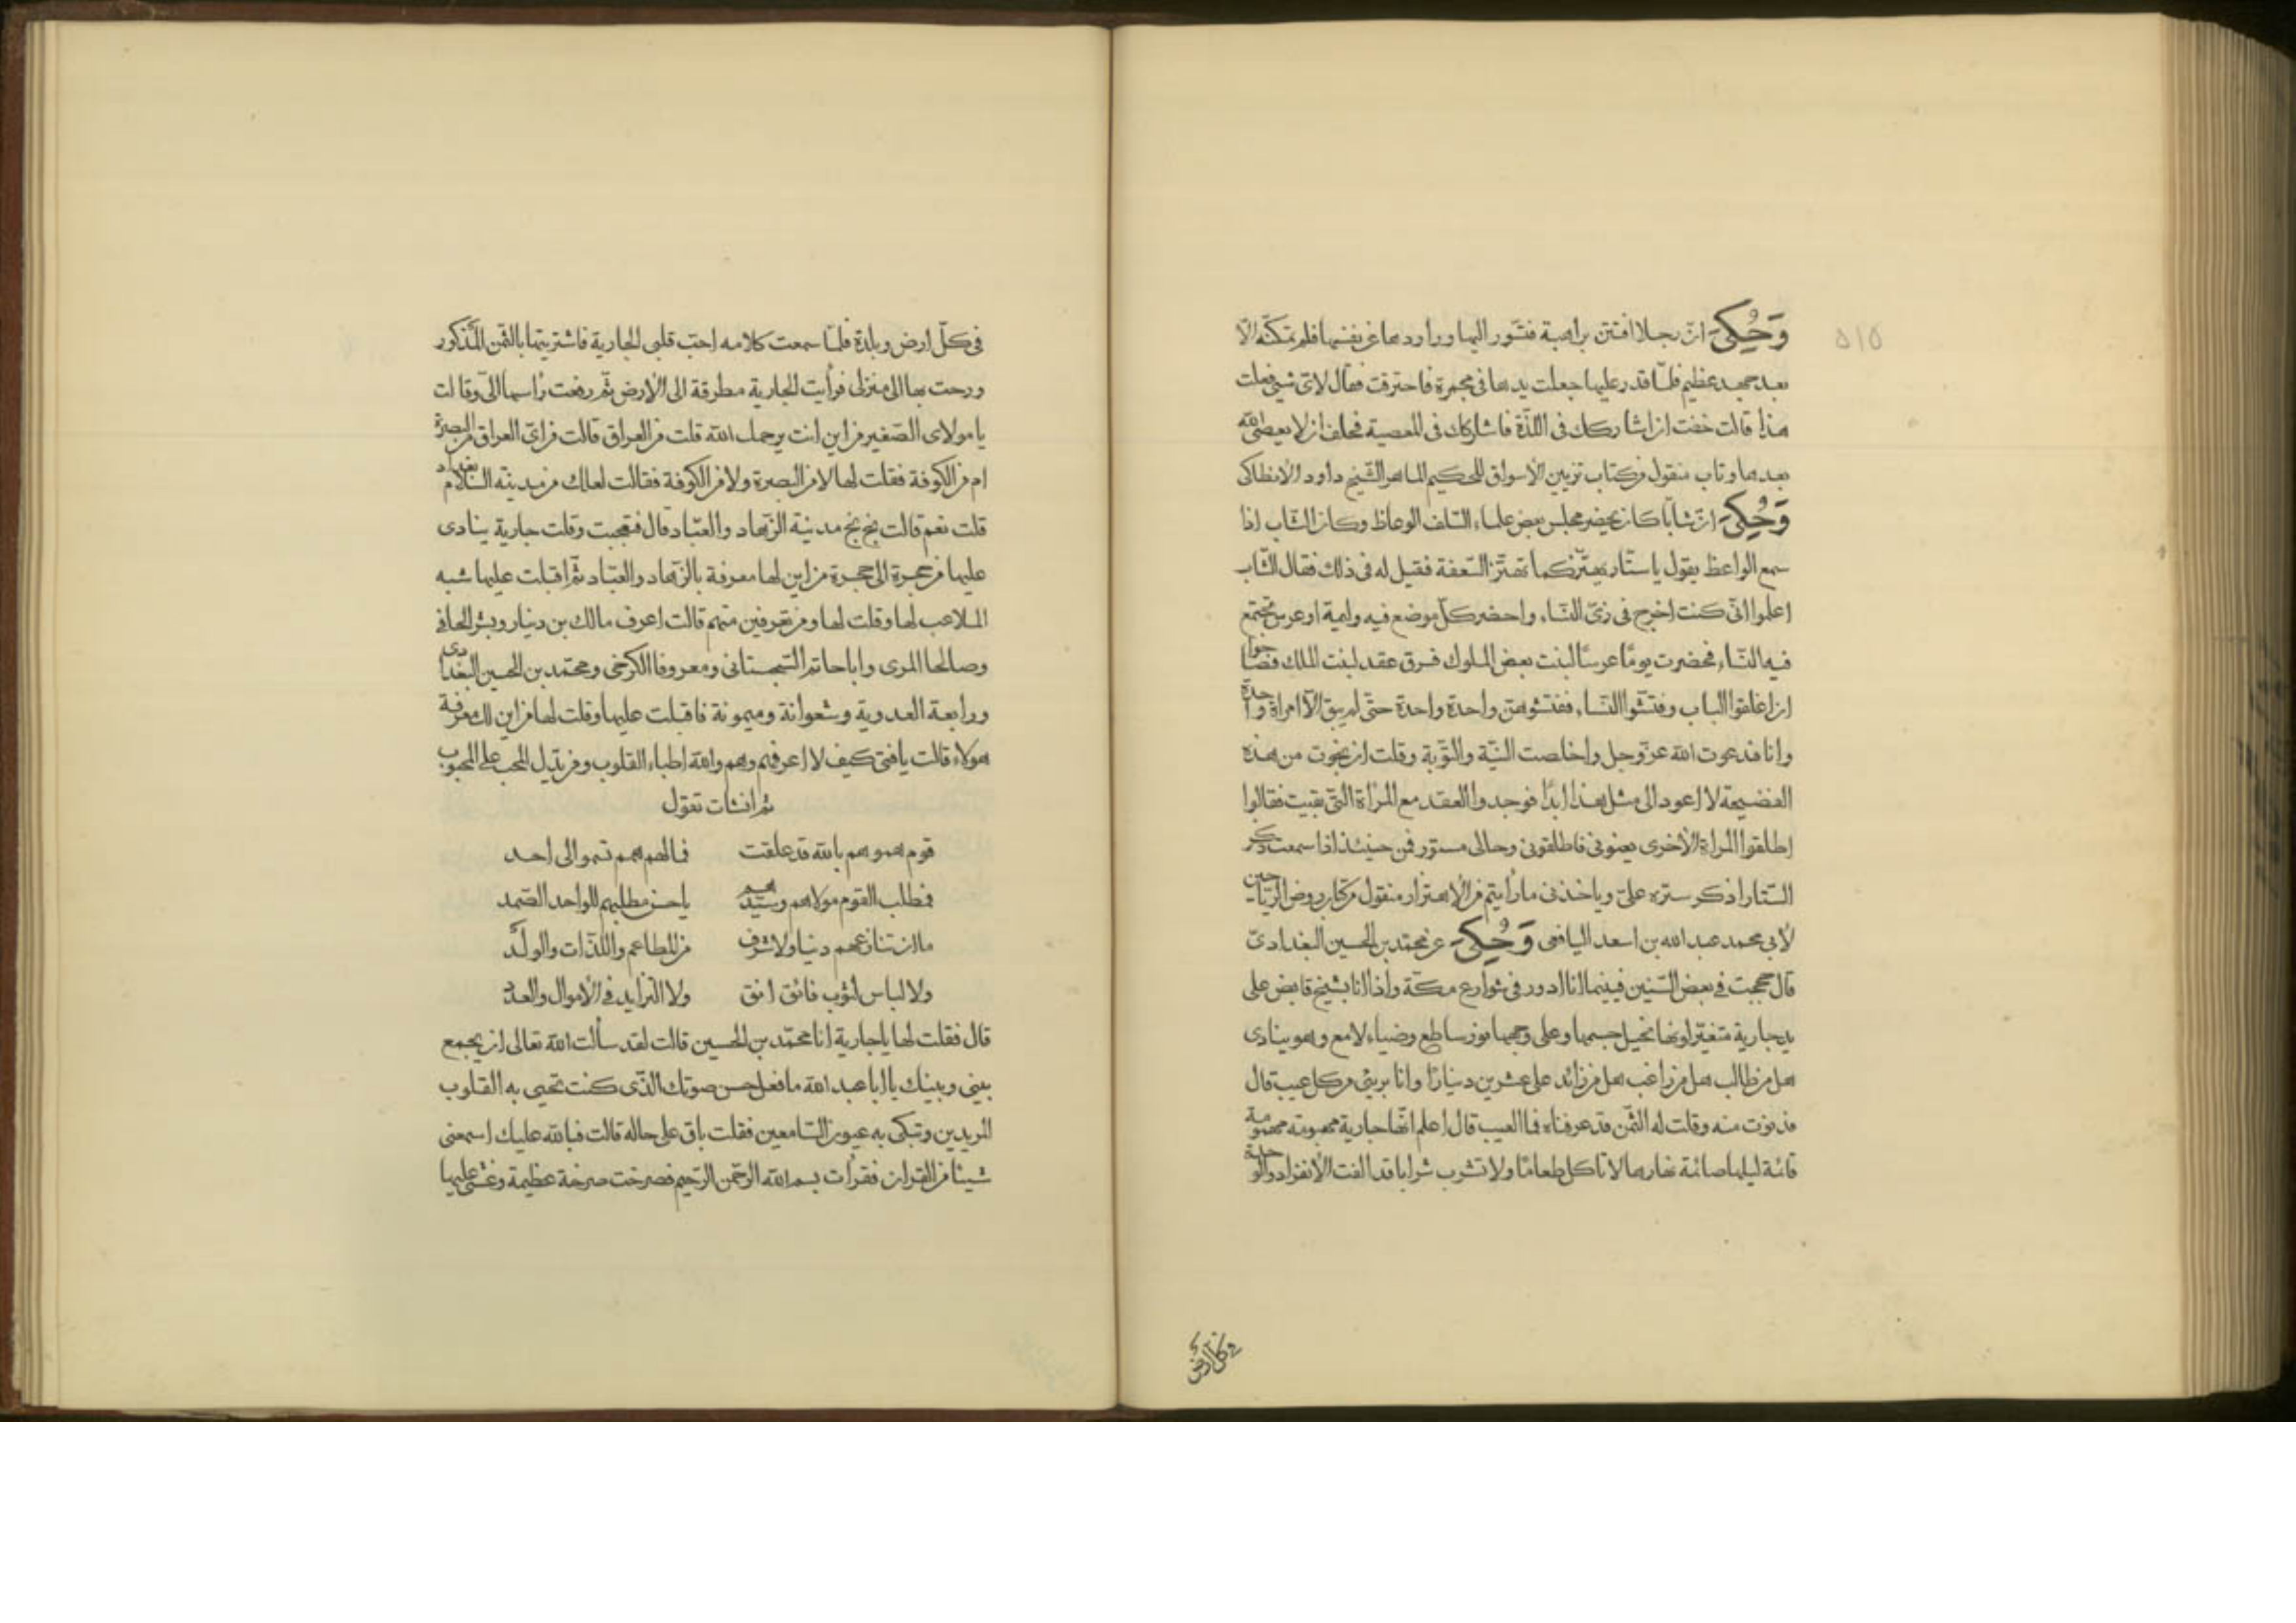 وَحُكِيَ ان رجلا افتتن براهبة فتسور اليها وراودها عن نفسها فلم تمكنه الا
بعد جهد عظيم فلمّا قدر عليها جعلت يدها في مجمرة فاحترقت فقال لاي شيئ فعلت
هذا قالت خفت ان اشاركك في اللذّة فاشاركك في المعصية فحلف ان لا يعصى الله
بعدها وتاب منقول من كتاب تزيين الاسواق للحكيم الماهر الشيخ داود الانطاكى
وَحُكِيَ انّ شابّا كان يحضر مجلس بعض علماء السّلف الوعاظ وكان الشاب اذا
سمع الواعظ يقول يا ستّار يهتزّ كما تهتزّ السّعفة فقيل له في ذلك فقال الشاب
اعلموا انّى كنت اخرج في زىّ النساء واحضر كلّ موضع فيه وليمة او عرس تجتمع
فيه النساء فحضرت يومًا عرسًا لبنت بعض الملوك فسرق عقد لبنت الملك فصاحوا
ان اغلقوا الباب وفتّشوا النساء ففتشوهنّ واحدة واحدة حتى لم يبق الا امراة واحدة
وانا فدعوت الله عزّ وجل واخلصت النيّة والتّوبة وقلت ان نجوت من هذه
الفضيحة لا اعود الى مثل هذا ابدًا فوجدوا العقد مع المرأة التى بقيت فقالوا
اطلقوا المراة الاخرى يعنونى فاطلقونى وحالى مستور فمن حينئذ اذا سمعت ذكر
السّتار اذكر ستره علىّ وياخذنى ما رأيتم من الاهتزاز منقول من كتاب روض الرياحين
لابى محمد عبد الله بن اسعد اليافعى وَحُكِيَ عن محمّد بن الحسين البغدادىّ
قال حججت في بعض السّنين فبينما انا ادور في شوارع مكّة واذا انا بشيخ قابض على
يد جارية متغيّر لونها نحيل جسمها وعلى وجهها نور ساطع وضياء لامع وهو ينادى
هل من طالب هل من راغب هل من زائد على عشرين دينارًا وانا بريئ من كل عيب قال
فدنوت منه وقلت له الثّمن قد عرفناه فما العيب قال اعلم انّها جارية مهمومة
قائمة ليلها صائمة نهارها لا تاكل طعامًا ولا تشرب شرابا قد الفت الانفراد والوحدة
في كلّ ارض
في كلّ ارض وبلدة فلمّا سمعت كلامه احبّ قلبى الجارية فاشتريتها بالثّمن المذكور
ورحت بها الى منزلى فرأيت الجارية مطرقة الى الارض ثمّ رفعت رأسها الىّ وقالت
يا مولاى الصّغير من اين انت يرحمك الله قلت من العراق قالت من اىّ العراق من البصرة
ام من الكوفة فقلت لها لا من البصرة ولا من الكوفة فقالت لعلك من مدينة السّلام بغداد
قلت نعم قالت بخ بخ مدينة الزّهاد والعبّاد قال فتعجبت وقلت جارية ينادى
عليها من حجرة الى حجرة من اين لها معرفة بالزّهاد والعبّاد ثم اقبلت عليها شبه
الملاعب لها وقلت لها ومن تعرفين منهم قالت اعرف مالك بن دينار وبشر الحافى
وصالحا المرى وابا حاتم السّجستانى ومعروفا الكرخى ومحمّد بن الحسين البغدادى
ورابعة العدوية وشعوانة وميمونة فاقبلت عليها وقلت لها من اين لك معرفة
هولاء قالت يا فتى كيف لا اعرفهم وهم والله اطباء القلوب ومن يدل المحب على المحبوب
ثم انشات تقول
قوم همومهم بالله قد علقت فما لهم همم تسموا الى احد
فمطلب القوم مولاهم وسيّدهم يا حسن مطلبهم للواحد الصّمد
ما ان تنازعهم دنيا ولا شرف من المطاعم واللذّات والولد
ولا لباس لثوب فائق انق ولا التزايد في الاموال والعدد
قال فقلت لها يا جارية انا محمّد بن الحسين قالت لقد سألت الله تعالى ان يجمع
بينى وبينك يا ابا عبد الله ما فعل حسن صوتك الذى كنت تحيى به القلوب
المريدين وتبكى به عيون السّامعين فقلت باق على حاله قالت فبالله عليك اسمعنى
شيئا من القران فقرأت بسم الله الرّحمن الرّحيم فصرخت صرخة عظيمة وغشى عليها